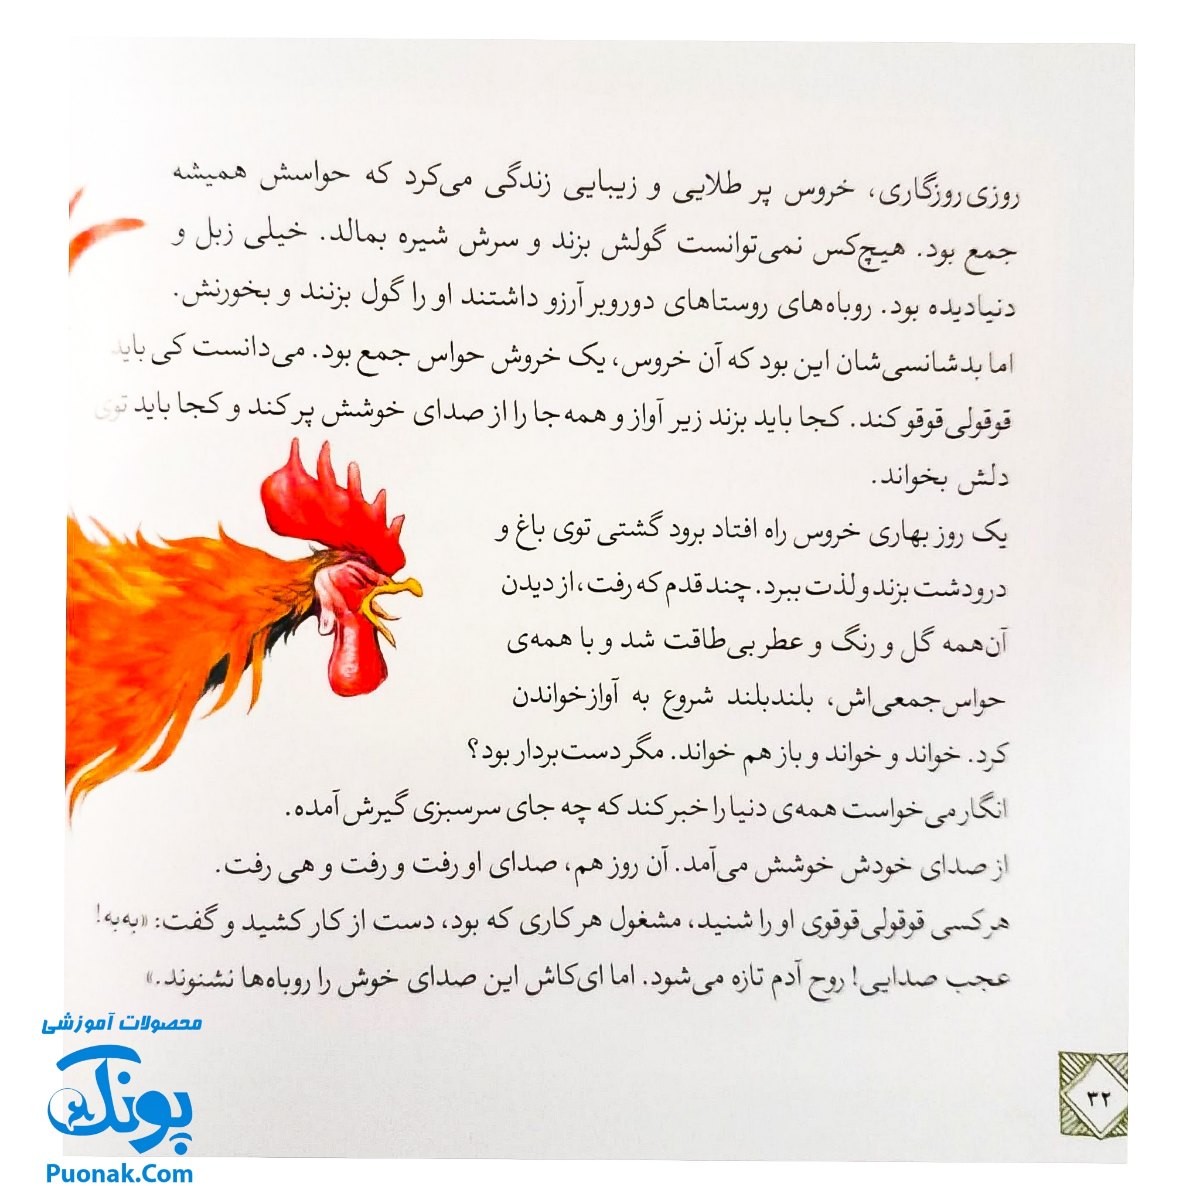 روزی روزگاری، خروس پر طلایی و زیبایی زندگی می‌کرد که حواسش همیشه
جمع بود. هیچ‌کس نمی‌توانست گولش بزند و سرش شیره بمالد. خیلی زبل و
دنیادیده بود. روباه‌های روستاهای دوروبر آرزو داشتند او را گول بزنند و بخورنش.
اما بدشانسی‌شان این بود که آن خروس، یک خروش حواس جمع بود. می‌دانست کی باید
قوقولی‌قوقو کند. کجا باید بزند زیر آواز و همه‌جا را از صدای خوشش پر کند و کجا باید توی
دلش بخواند.
یک روز بهاری خروس راه افتاد برود گشتی توی باغ و
درودشت بزند و لذت ببرد. چند قدم که رفت، از دیدن
آن‌همه گل و رنگ و عطر بی‌طاقت شد و با همه‌ی
حواس‌جمعی‌اش، بلندبلند شروع به آوازخواندن
کرد. خواند و خواند و باز هم خواند. مگر دست‌بردار بود؟
انگار می‌خواست همه‌ی دنیا را خبر کند که چه جای سرسبزی گیرش آمده.
از صدای خودش خوشش می‌آمد. آن روز هم، صدای او رفت و رفت و هی رفت.
هرکسی قوقولی‌قوقوی او را شنید، مشغول هرکاری که بود، دست از کار کشید و گفت: «به‌به!
عجب صدایی! روح آدم تازه می‌شود. اما ای‌کاش این صدای خوش را روباه‌ها نشنوند.»
۳۲
محصولات آموزشی
پونک
Puonak.Com